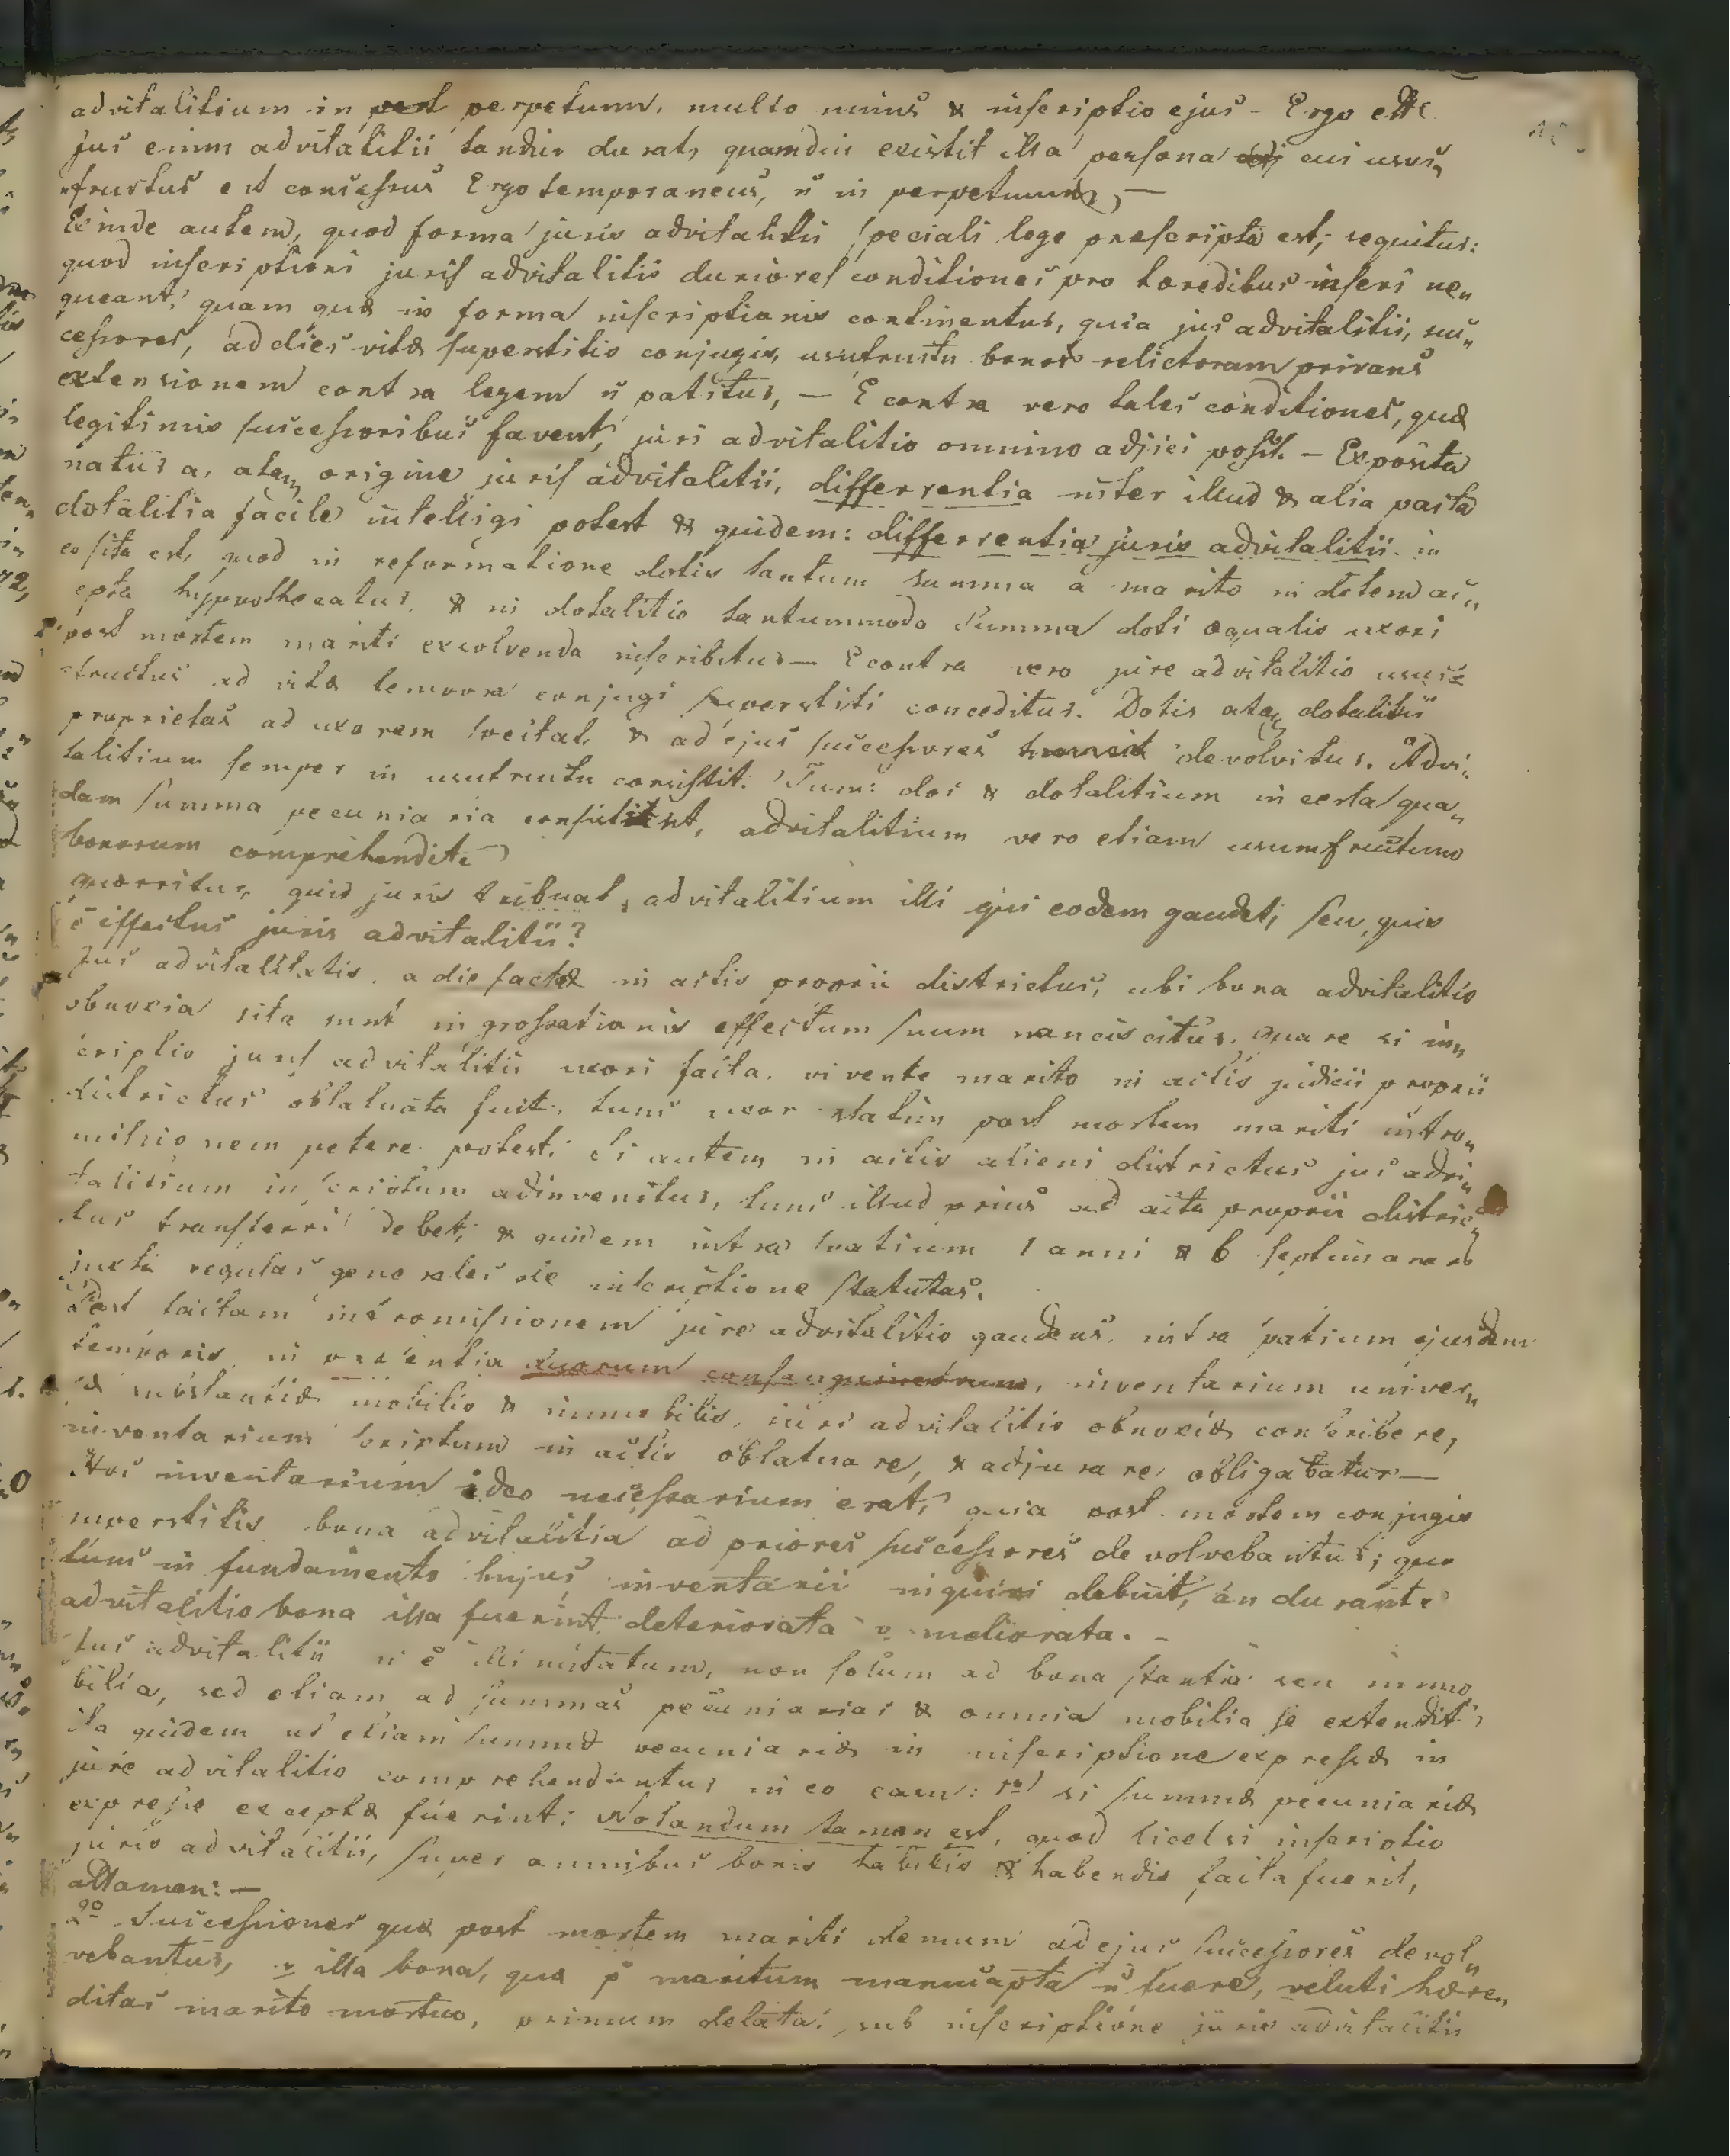 advitalitium in pert perpetuum, multo minus & inscriptio ejus - Ergo etc
Jus enim advitalitii tandiu durat, quamdiu existit illa persona cui usus„
„fructus est concessus Ergo temporaneus, ñ in perpetuum, —
Exinde autem, quod forma juris advitalitii speciali lege prescripta est, sequitur:
quod inscriptioni juris advitalitii duriores conditiones pro hæredibus inseri ne„
queant, quam quæ in forma inscriptionis continentur, quia jus advitalitii, suc„
cessores, ad dies vitæ superstitis conjugis, usufructu bonor relictorum privans
extensionem contra legem ñ patitur, — E contra vero tales conditiones, quæ
legitimis successoribus favent, juri advitalitio omnino adjici possit. — Exposita
natura, atq origine juris advitalitii, differrentia inter illud & alia pacta
dotalitia facile intelligi potest & quidem: differrentia juris advitalitii. in
eo sita est, quod in reformatione dotis tantum summa a marito in dotem ac„
cepta hypothecatur, & in dotalitio tantummodo summa doti æqualis uxori
post mortem mariti exsolvenda inscribitur — E contra vero jure advitalitio usus
„fructus ad vitæ tempora conjugi superstiti conceditur. Dotis atq dotalitii
proprietas ad uxorem spectat, & ad ejus successores devolvitur. Advi„
talitium semper in usufructu consistit. Tum: dos & dotalitium in certa qua„
dam summa pecuniaria consistit, advitalitium vero etiam usumfructum
bonorum comprehendit
quærritur, quid juris tribuat, advitalitium illi qui eodem gaudet, seu, quis
ē effectus juris advitalitii?
Jus advitalitatis, a die factæ in actis proprii districtus, ubi bona advitalitio
obnoxia sita sunt ingrossationis effectum suum nanciscitur. quare si ins„
criptio juris advitalitii uxori facta, vivente marito in actis judicii proprii
districtus oblatuata fuit, tunc uxor statim post mortem mariti intro„
missionem petere potest; si autem in actis alieni districtus jus advi„
talitium inscriptum adinvenitur, tunc illud prius ad acta proprii distric„
tus transferri debet, & quidem intra spatium 1 anni & 6 septimanarū
juxta regulas generales de inscriptione statutas.
Post factam intromissionem jure advitalitio gaudens, intra spatium ejusdem
temporis, in præsentia duorum consanguineorum, inventarium univer„
sæ substantiæ mobilis & immobilis, juri advitalitio obnoxiæ conscribere,
inventarium scriptum in actis oblatuare, & adjurare obligabatur —
Hoc inventarium ideo necessarium erat, quia post mortem conjugis
superstitis bona advitalitia ad priores successores devolvebantur; quo
tunc in fundamento hujus inventarii inquiri debuit, an durante
advitalitio bona illa fuerint deteriorata v meliorata. -
Jus advitalitii ñ ē illimitatum, non solum ad bona stantia seu immo
bilia, sed etiam ad summas pecuniarias & omnia mobilia se extendit,
ita quidem ut etiam summæ pecuniariæ in inscriptione expressæ in
jure advitalitio comprehenduntur in eo casu: si summæ pecuniariæ
expresse exceptæ fuerint: Notandum tamen est, quod licet si inscriptio
juris advitalitii, super omnibus bonis habitis & habendis facta fuerit,
attamen: —
2do Successiones quæ post mortem mariti demum ad ejus successores devol„
vebantur, v illa bona, quæ p maritum manucapta ñ fuere, veluti hære„
ditas marito mortuo, primum delata, sub inscriptione juris advitalitii